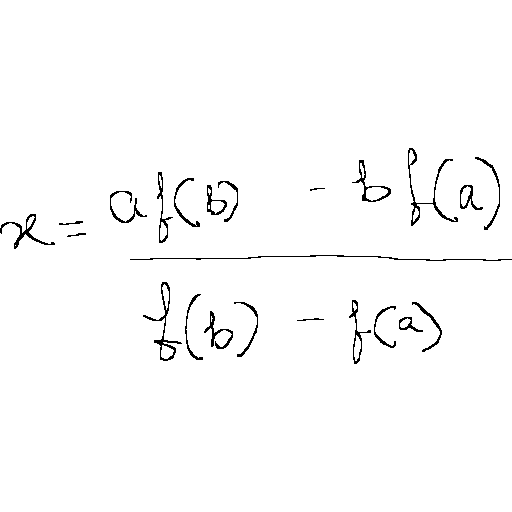 x = \frac{a f(b) - b f(a)}{f(b) - f(a)}